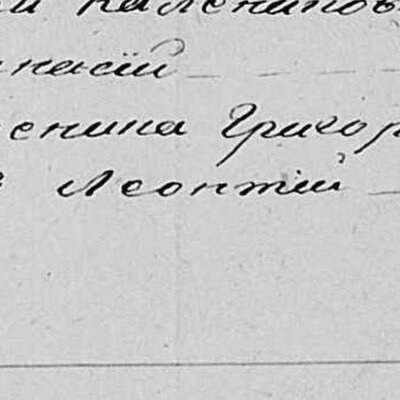 ий Каленипов
насій
енина Григор
Леонтій